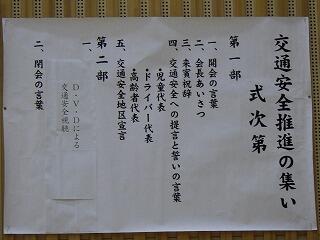 交通安全推進の集い
式次第
第一部
一、開会の言葉
二、会長あいさつ
三、来賓祝辞
四、交通安全への提言と誓いの言葉
・児童代表
・ドライバー代表
・高齢者代表
五、交通安全地区宣言
第二部
一、
D・V・Dによる
交通安全視聴
二、閉会の言葉